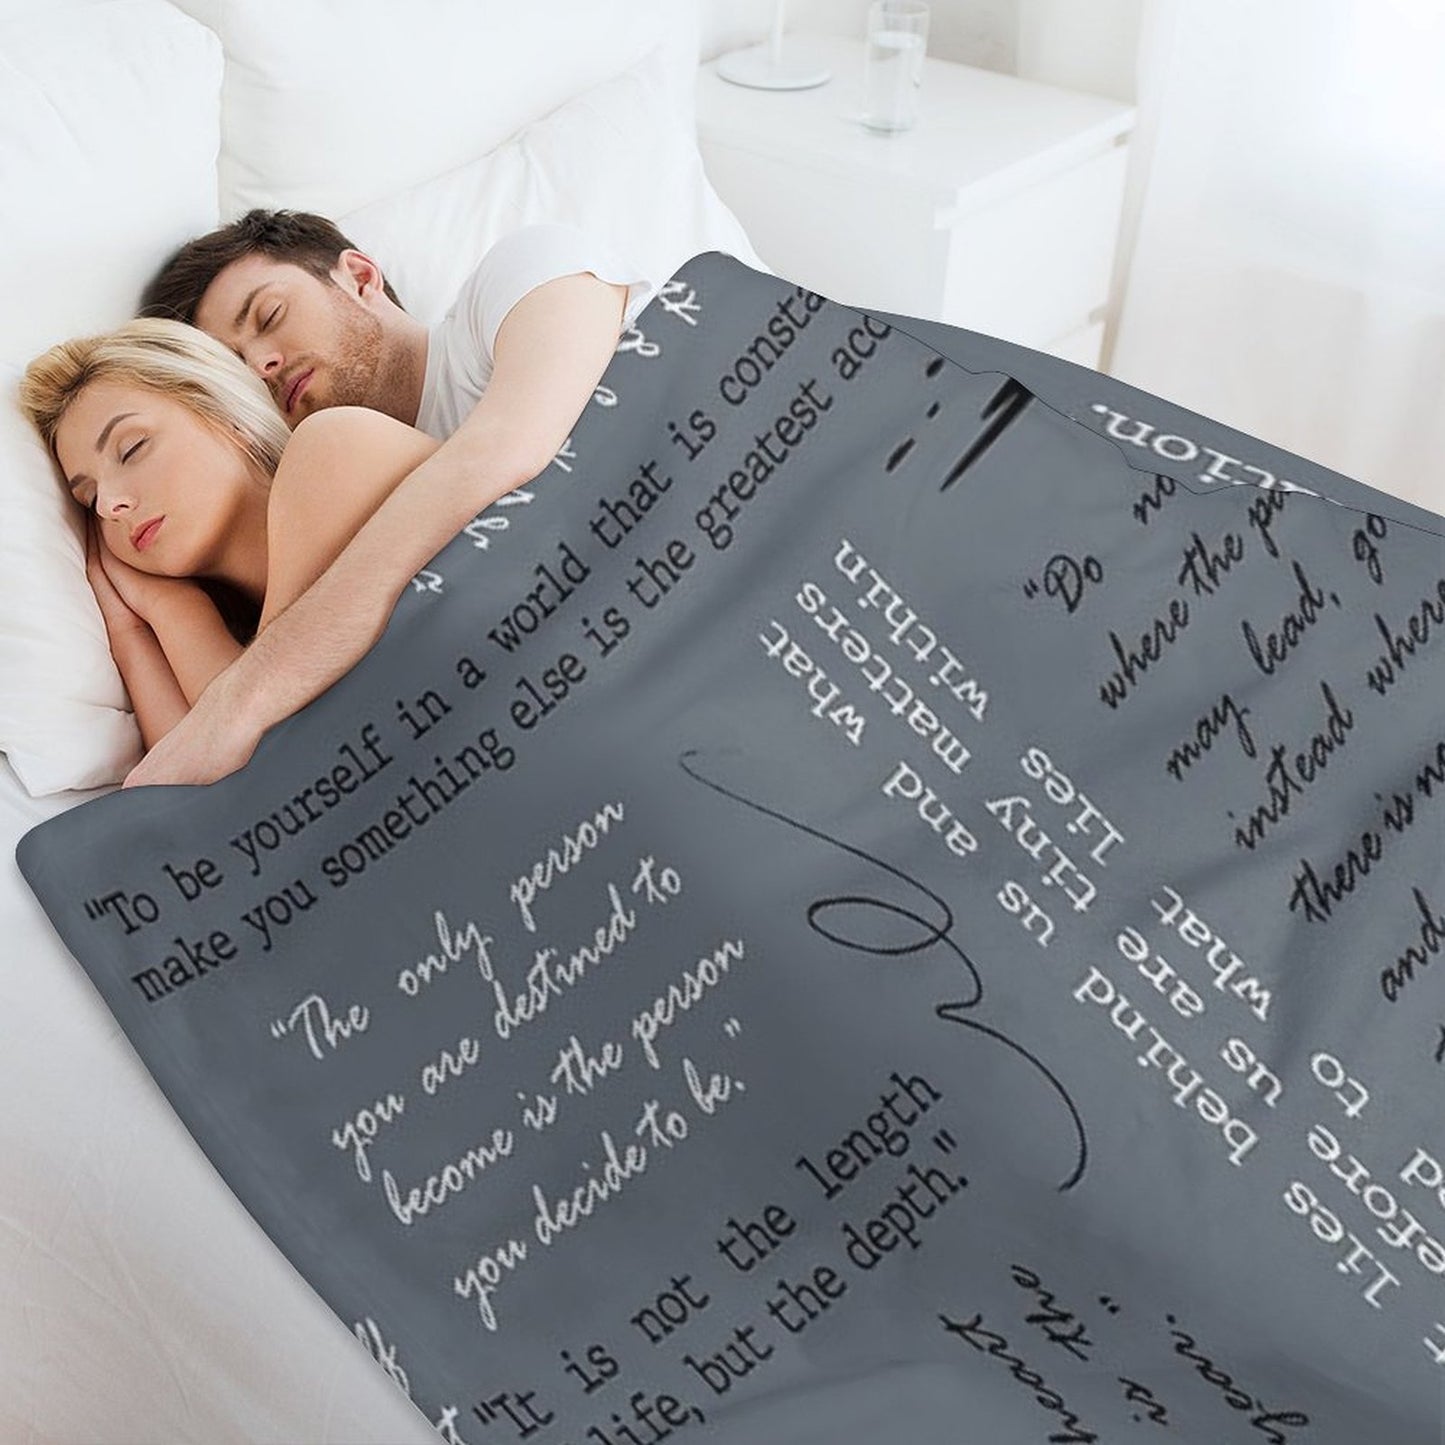 "To be yourself in a world that is consta
make you something else is the greatest acc
"The only person
you are destined to
become is the person
you decide to be."
"It is not the length
life, but the depth."
"Do no
where the pa
may lead, go
instead where
there is no
and
tion.
lies behind us and what
before us are tiny matters
to what lies within
heart is the
year."